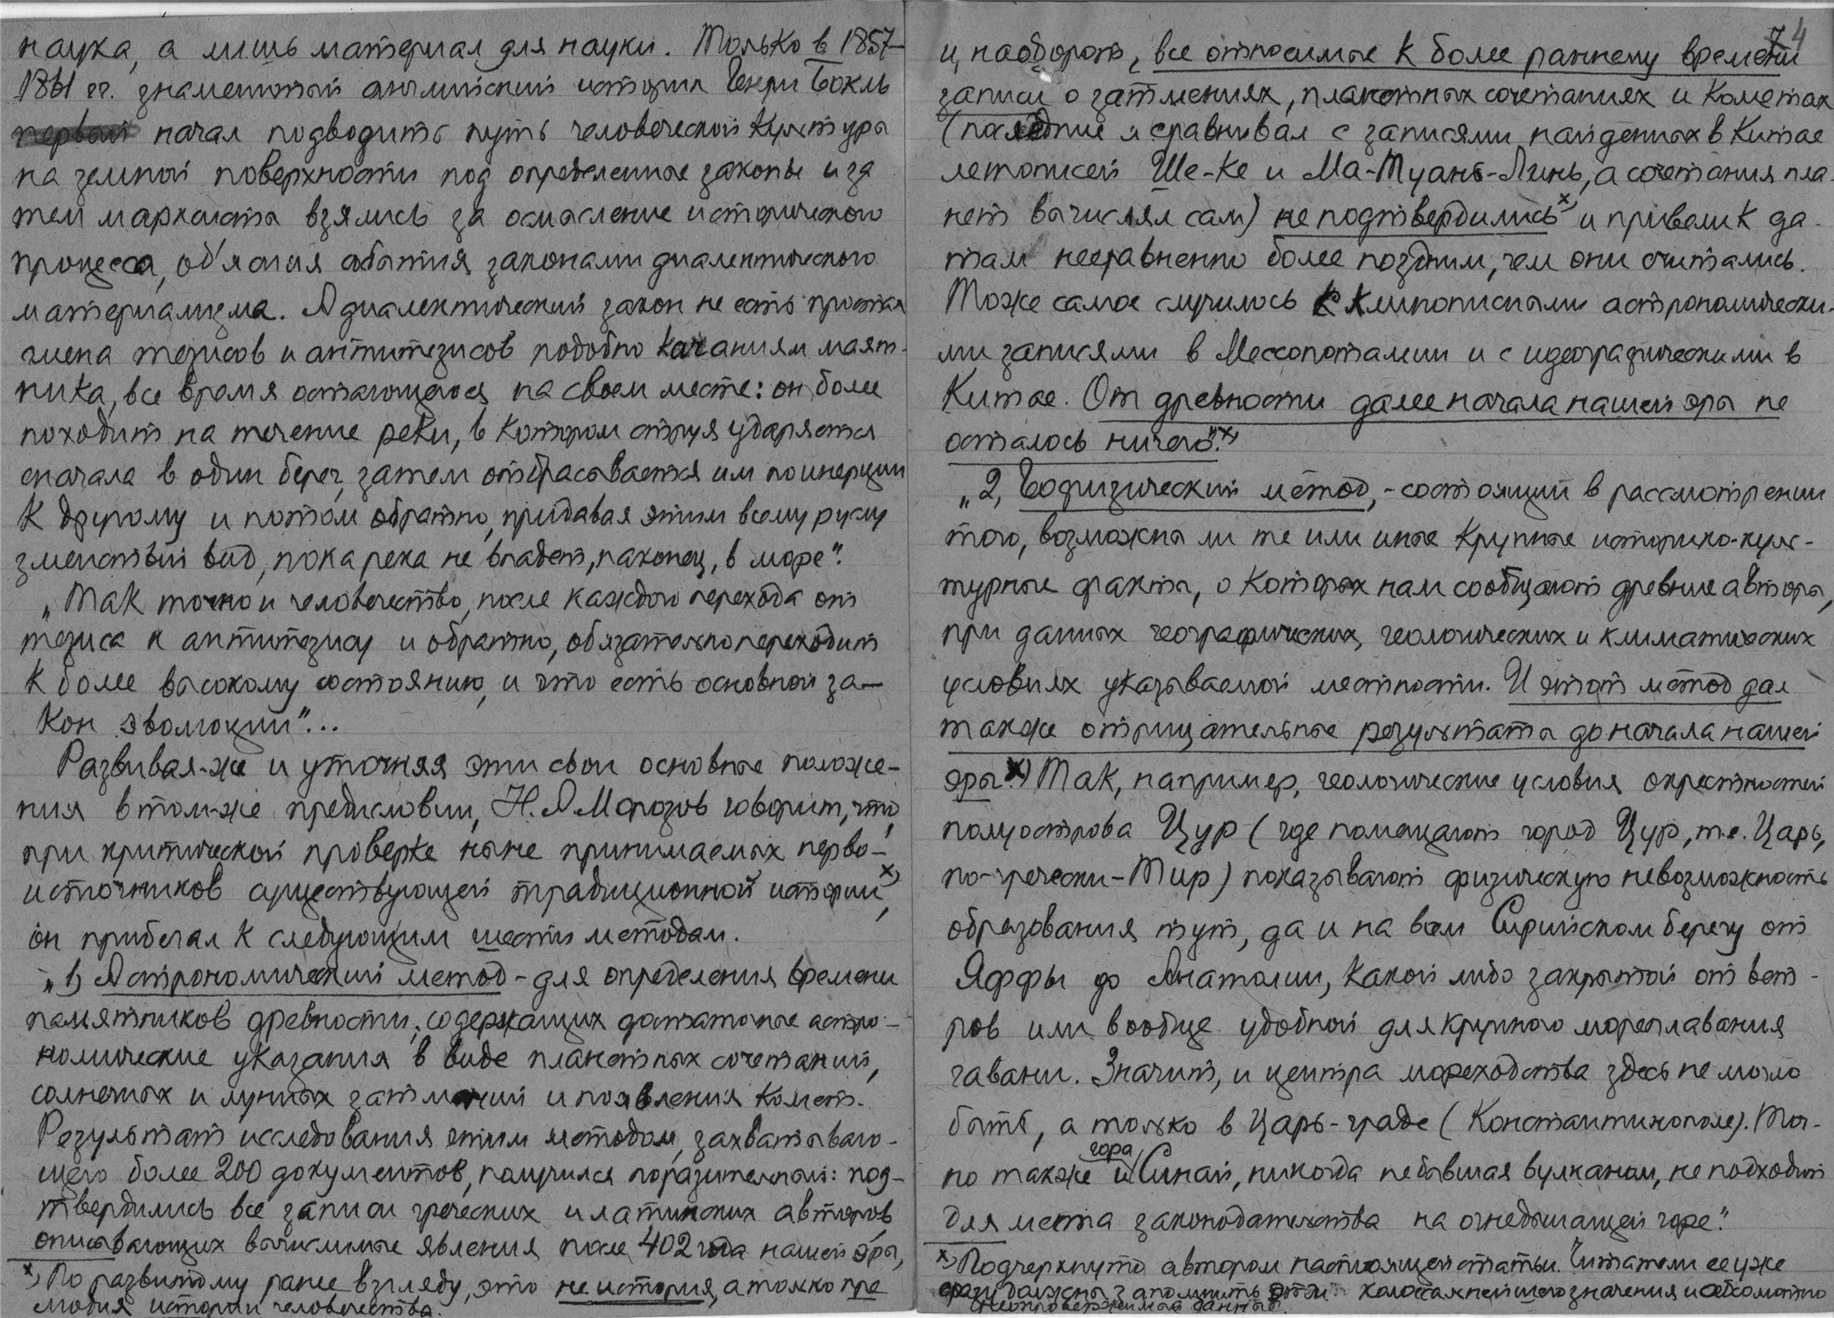 наука, а лишь материал для науки. Только в 1857–
1861 гг. знаменитый английский историк Генри Бокль
первый начал подводить путь человеческой культуры
на земной поверхности под определенные законы и за
тем марксисты взялись за осмысление исторического
процесса, об'ясняя события законами диалектического
материализма. А диалектический закон не есть простая
смена тезисов и антитезисов подобно качаниям маят-
ника, все время остающегося на своем месте: он более
походит на течение реки, в котором струя ударяется
сначала в один берег, затем отбрасывается им по инерции
к другому и потом обратно, придавая этим всему руслу
змеистый вид, пока река не впадет, наконец, в море".
„Так точно и человечество, после каждого перехода от
тезиса к антитезису и обратно, обязательно переходит
к более высокому состоянию, и что есть основной за–
кон эволюции"...
Развивая-же и уточняя эти свои основные положе–
ния в том-же предисловии, Н.А Морозов говорит, что,
при критической проверке ныне принимаемых перво–
источников существующей традиционной истории х),
он прибегал к следующим шести методам.
„1) Астрономический метод – для определения времени
памятников древности, содержащих достаточные астро–
номические указания в виде планетных сочетаний,
солнечных и лунных затмений и появления комет.
Результат исследования этим методом, захватываю-
щего более 200 документов, получился поразительный: под–
твердились все записи греческих и латинских авторов,
описывающих вычислимые явления после 402 года нашей эры,
х) По развитому ранее взгляду, это не история, а только пре
людия истории человечества.
74
и, наоборот, все относимые к более раннему времени
записи о затмениях, планетных сочетаниях и кометах
(последние я сравнивал с записями найденных в Китае
летописей Ше-Ке и Ма-Туань-Линь, а сочетания пла-
нет вычислял сам) не подтвердились х) и привели к да-
там несравненно более поздним, чем они считались.
Тоже самое случилось с клинописными астрономически-
ми записями в Мессопотамии и с идеографическими в
Китае. От древности далее начала нашей эры не
осталось ничего". х)
„2, Геофизический метод, – состоящий в рассмотрении
того, возможны ли те или иные крупные историко-куль-
турные факты, о которых нам сообщают древние авторы,
при данных географических, геологических и климатических
условиях указываемой местности. И этот метод дал
также отрицательные результаты до начала нашей
эры. х) Так, например, геологические условия окрестностей
полуострова Цур (где помещают город Цур, т.е. Царь,
по-гречески – Тир) показывают физическую невозможность
образования тут, да и на всем Сирийском берегу от
Яффы до Анатолии, какой либо закрытой от вет-
ров или вообще удобной для крупного мореплавания
гавани. Значит, и центра мореходства здесь не могло
быть, а только в Царь-граде (Константинополе). Точ-
но также и гора Синай, никогда не бывшая вулканом, не подходит
для места законодательства на огнедышащей горе".
х) Подчеркнуто автором настоящей статьи. Читатели ее уже
сразу должны запомнить эти колоссальнейшего значения и абсолютно
неопровержимые данные.